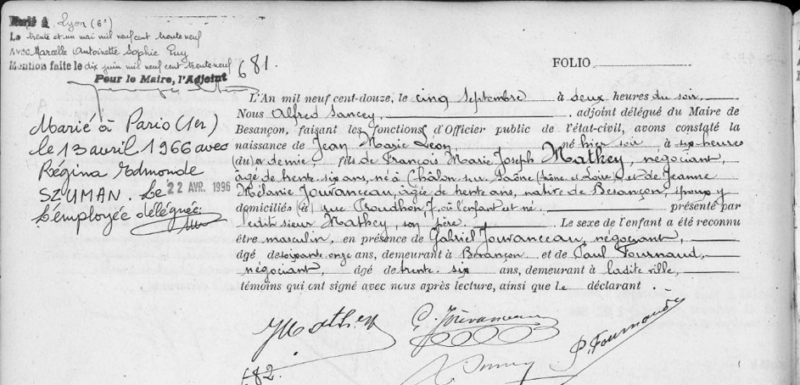 Marié à Lyon (6e)
Le trente et un mai mil neuf cent trente neuf
Avec Marcelle Antoinette Sophie Puy
Mention faite le dix juin mil neuf cent trente neuf
Pour le Maire, l'Adjoint
681.
FOLIO
Marié à Paris (1er)
le 13 avril 1966 avec
Régina Edmonde
SZUMAN. Le 22 AVR. 1996
L'employée déléguée:
L'An mil neuf cent-douze, le cinq Septembre à deux heures du soir,
Nous Alfred Sancey, adjoint délégué du Maire de
Besançon, faisant les fonctions d'Officier public de l'état-civil, avons constaté la
naissance de Jean Marie Léon né hier soir à six heures
(du) et demie, fils de François Marie Joseph Mathey, négociant,
âgé de trente six ans, né à Châlon sur Saône (Saône et Loire) et de Jeanne
Mélanie Jouvanceau, âgée de trente ans, native de Besançon, époux y
domiciliés (à) rue Proudhon, 7, où l'enfant est né. présenté par
ledit sieur Mathey, son père. Le sexe de l'enfant a été reconnu
être masculin, en présence de Gabriel Jouvanceau, négociant,
âgé de soixante onze ans, demeurant à Besançon et de Paul Fournaud,
négociant, âgé de trente six ans, demeurant à ladite ville,
témoins qui ont signé avec nous après lecture, ainsi que le déclarant.
JMathey G. Jouvanceau P. Fournaud
682.